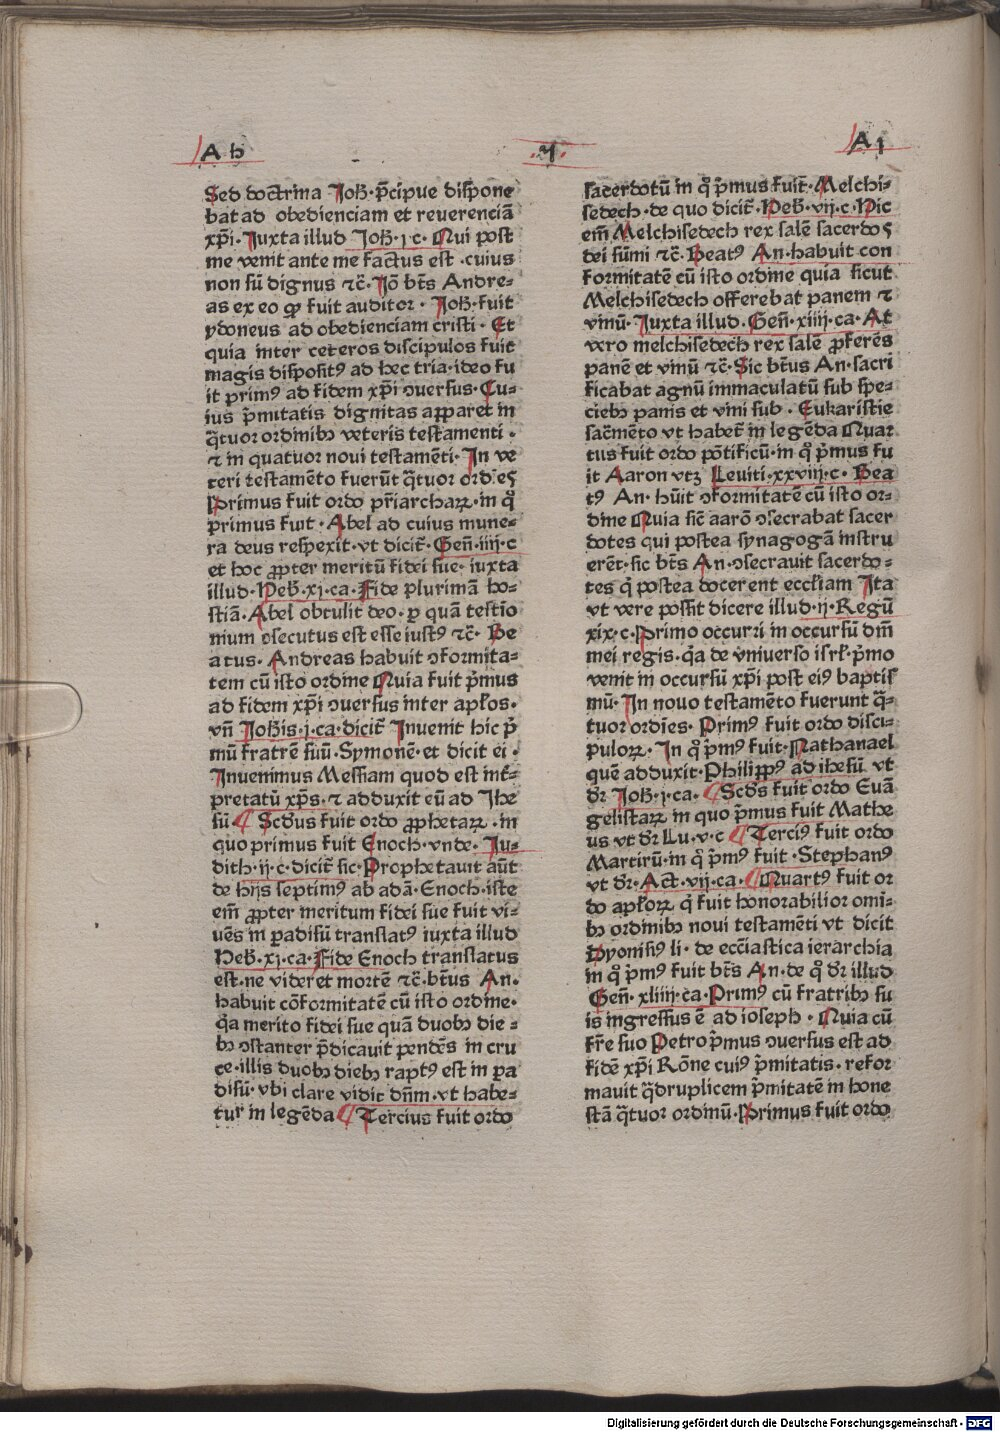 A h
·1·
A i
Sed doctrina Joh̅· p̅cipue dispone
bat ad obedienciam et reuerenciā
xp̄i· Juxta illud Joh̅·j·c· Qui post
me venit ante me factus est ·cuius
non sū dignus ⁊c̄· Jō bt̄s Andre⸗
as ex eo ꝙ fuit auditor · Joh̅· fuit
ydoneus ad obedienciam cristi · Et
quia inter ceteros discipulos fuit
magis disposit⁹ ad hec tria· ideo fu
it prim⁹ ad fidem xp̄i ↄuersus· Cu⸗
ius p̄mitatis dignitas apparet in
q̄tuor ordinibꝫ veteris testamenti ·
⁊ in quatuor noui testamēti· In ve
teri testamēto fuerūt q̄tuor ordēs
Primus fuit ordo pr̄iarchaꝝ· in qͦ
primus fuit · Abel ad cuius mune⸗
ra deus respexit· vt dicit̄· Gen̄·iiij·c
et hoc ꝓpter meritū fidei sue· iuxta
illud· Heb̄·xj·ca· Fide plurimā ho⸗
stiā· Abel obtulit deo· ꝑ quā testīo
nium ↄsecutus est esse iust⁹ ⁊c̄· Be
atus· Andreas habuit ↄformita⸗
tem cū isto ordine Quia fuit p̄mus
ad fidem xp̄i ↄuersus inter apl̄os·
vn̄ Joh̄is·j·ca·dicit̄ Inuenit hic p̄
mū fratrē suū· Symonē· et dicit ei ·
Inuenimus Messiam quod est int̄⸗
pretatū xp̄s· ⁊ adduxit eū ad Jhe
sū ¶ Scd̄us fuit ordo ꝓphetaꝝ · in
quo primus fuit Enoch· vnde· Ju⸗
dith·ij·c·dicit̄ sic· Prophetauit aūt
de hijs septim⁹ ab adā· Enoch· iste
em̄ ꝓpter meritum fidei sue fuit vi⸗
uēs in ꝑadisū translat⁹ iuxta illud
Heb̄·xj·ca· Fide Enoch translatus
est· ne videret mortē ⁊c̄· bt̄us An·
habuit cōformitatē cū isto ordine·
q̄a merito fidei sue quā duobꝫ die ⸗
bꝫ ↄstanter p̄dicauit pendēs in cru
ce· illis duobꝫ diebꝫ rapt⁹ est in ꝑa
disū· vbi clare vidit dn̄m· vt habe⸗
tur in legēda ¶ Tercius fuit ordo
sacerdotū in qͦ p̄mus fuit̄· Melchi⸗
sedech· de quo dicit̄· Heb̄·vij·c· Hic
em̄ Melchisedech rex salē sacerdos
dei sūmi ⁊c̄· Beat⁹ An· habuit con
formitatē cū isto ordine quia sicut
Melchisedech offerebat panem ⁊
vinū· Juxta illud· Gen̄·xiiij·ca· At
vero melchisedech rex salē ꝓferēs
panē et vinū ⁊c̄· Sic bt̄us An· sacri
ficabat agnū immaculatū sub spe⸗
ciebꝫ panis et vini sub · Eukaristie
sacr̄mēto vt habet̄ in legēda Quar
tus fuit ordo pōtificū· in qͦ p̄mus fu
it Aaron vtꝫ Leuiti·xxviij·c· Bea
t⁹ An· hūit ↄformitatē cū isto or⸗
dine Quia sic̄ aarō ↄsecrabat sacer
dotes qui postea synagogā instru
erēt· sic bt̄s An· ↄsecrauit sacerdo⸗
tes q̄ postea docerent eccl̄iam Ita
vt vere possit dicere illud·ij·Regū
xix·c· Primo occurri in occursū dn̄i
mei regis· q̄a de vniuerso isrl̄· p̄mo
venit in occursū xp̄i post ei⁹ baptis
mū· In nouo testamēto fuerunt q̄⸗
tuor ordīes· Prim⁹ fuit ordo disci⸗
puloꝝ· In qͦ p̄m⁹ fuit· Nathanael
quē adduxit· Philipp⁹ ad ihesū vt
dr̄ Joh̅·j·ca· ¶ Scd̄s fuit ordo Euā
gelistaꝝ in quo p̄mus fuit Mathe
us vt dr̄ Lu·v·c ¶ Terci⁹ fuit ordo
Martirū· in qͦ p̄m⁹ fuit · Stephan⁹
vt dr̄· Act̄·vij·ca· ¶ Quart⁹ fuit or
do apl̄oꝝ q̄ fuit honorabilior omi̅⸗
bꝫ ordinibꝫ noui testamēti vt dicit
Dyonisi⁹ li· de ecc̄iastica ierarchia
in qͦ p̄m⁹ fuit bt̄s An· de qͦ dr̄ illud
Gen̄·xliiij·ca· Prim⁹ cū fratribꝫ su
is ingressus ē ad ioseph · Quia cū
fr̄e suo Petro p̄mus ↄuersus est ad
fidē xp̄i Rōne cui⁹ p̄mitatis· refor
mauit q̄druplicem p̄mitatē in hone
stā q̄tuor ordinū· Primus fuit ordo
Digitalisierung gefördert durch die Deutsche Forschungsgemeinschaft · DFG